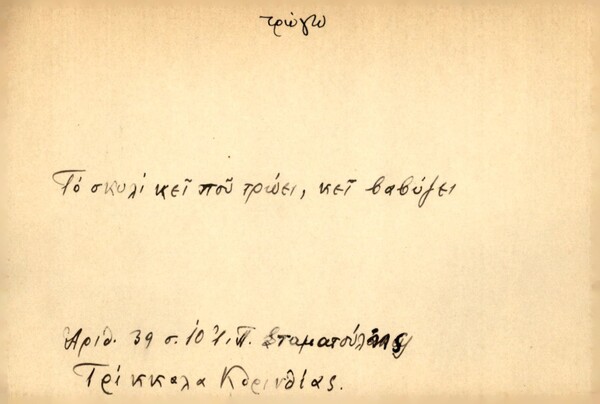 τρώγω
Τό σκυλί κεῖ ποῦ τρώει, κεῖ βαβύζει
Ἀριθ. 39 σ. 10 Ἰ. Π. Σταματούλης
Τρίκκαλα Κορινθίας.